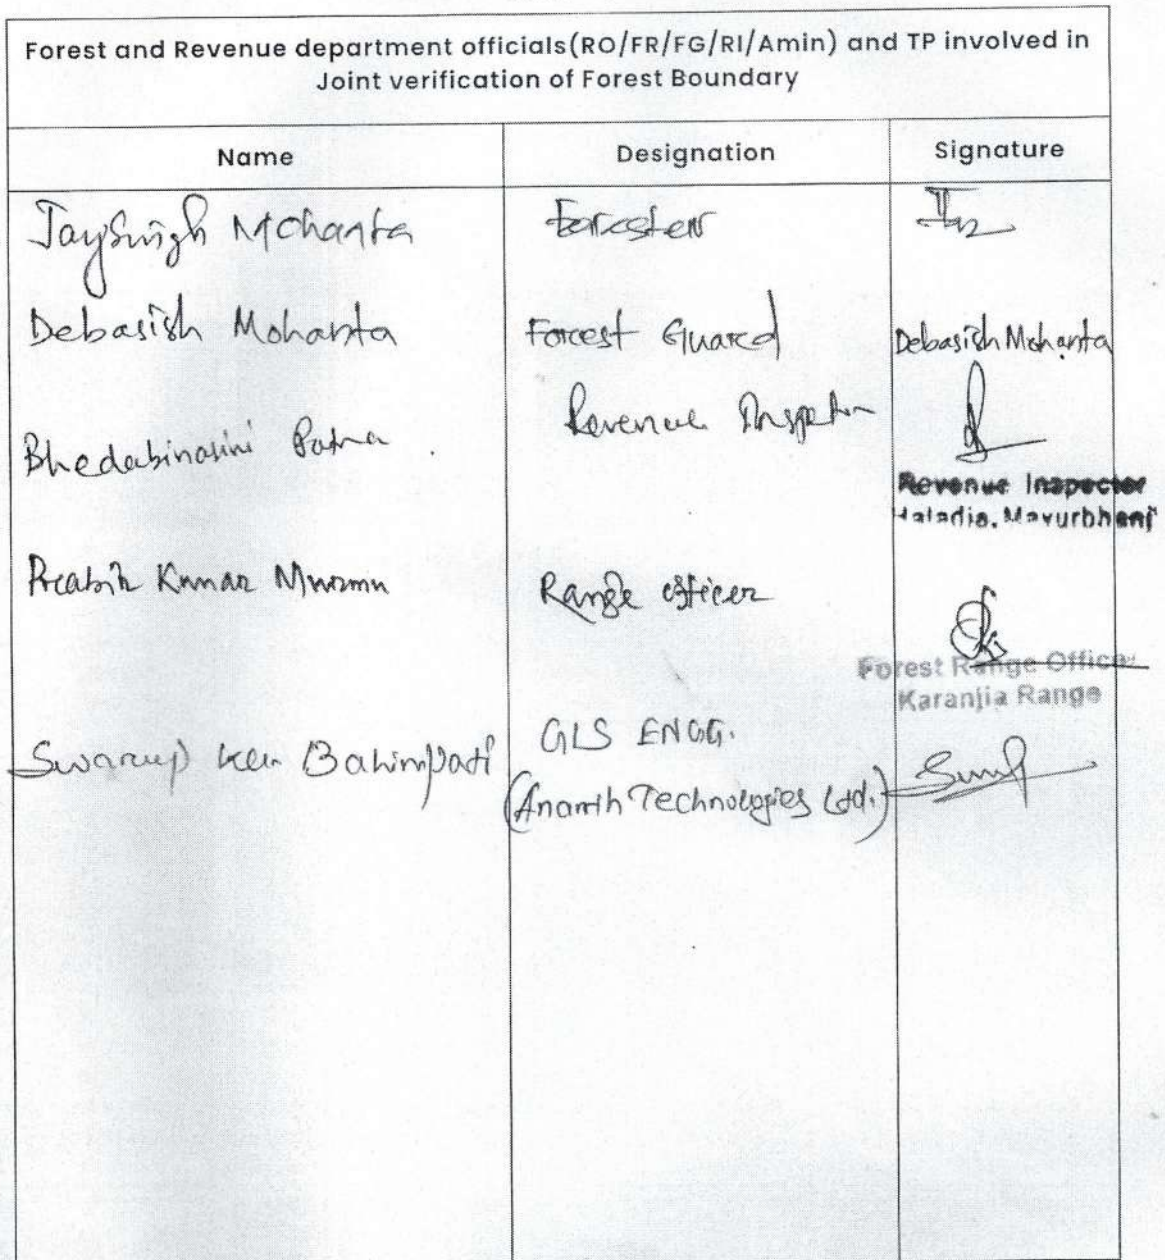 Forest and Revenue department officials(RO/FR/FG/RI/Amin) and TP involved in
Joint verification of Forest Boundary
Name Designation Signature
JaySingh Mohanta Forester
Debasish Mohanta Forest Guard Debasish Mohanta
Bhedabinasini Patra Revenue Inspector
Revenue Inspector
Haladia, Mayurbhanj
Kumar Murmu Range officer
Forest Range Officer
Karanjia Range
Swarup Bahinipati GIS ENGG.
(Ananth Technologies Ltd.)